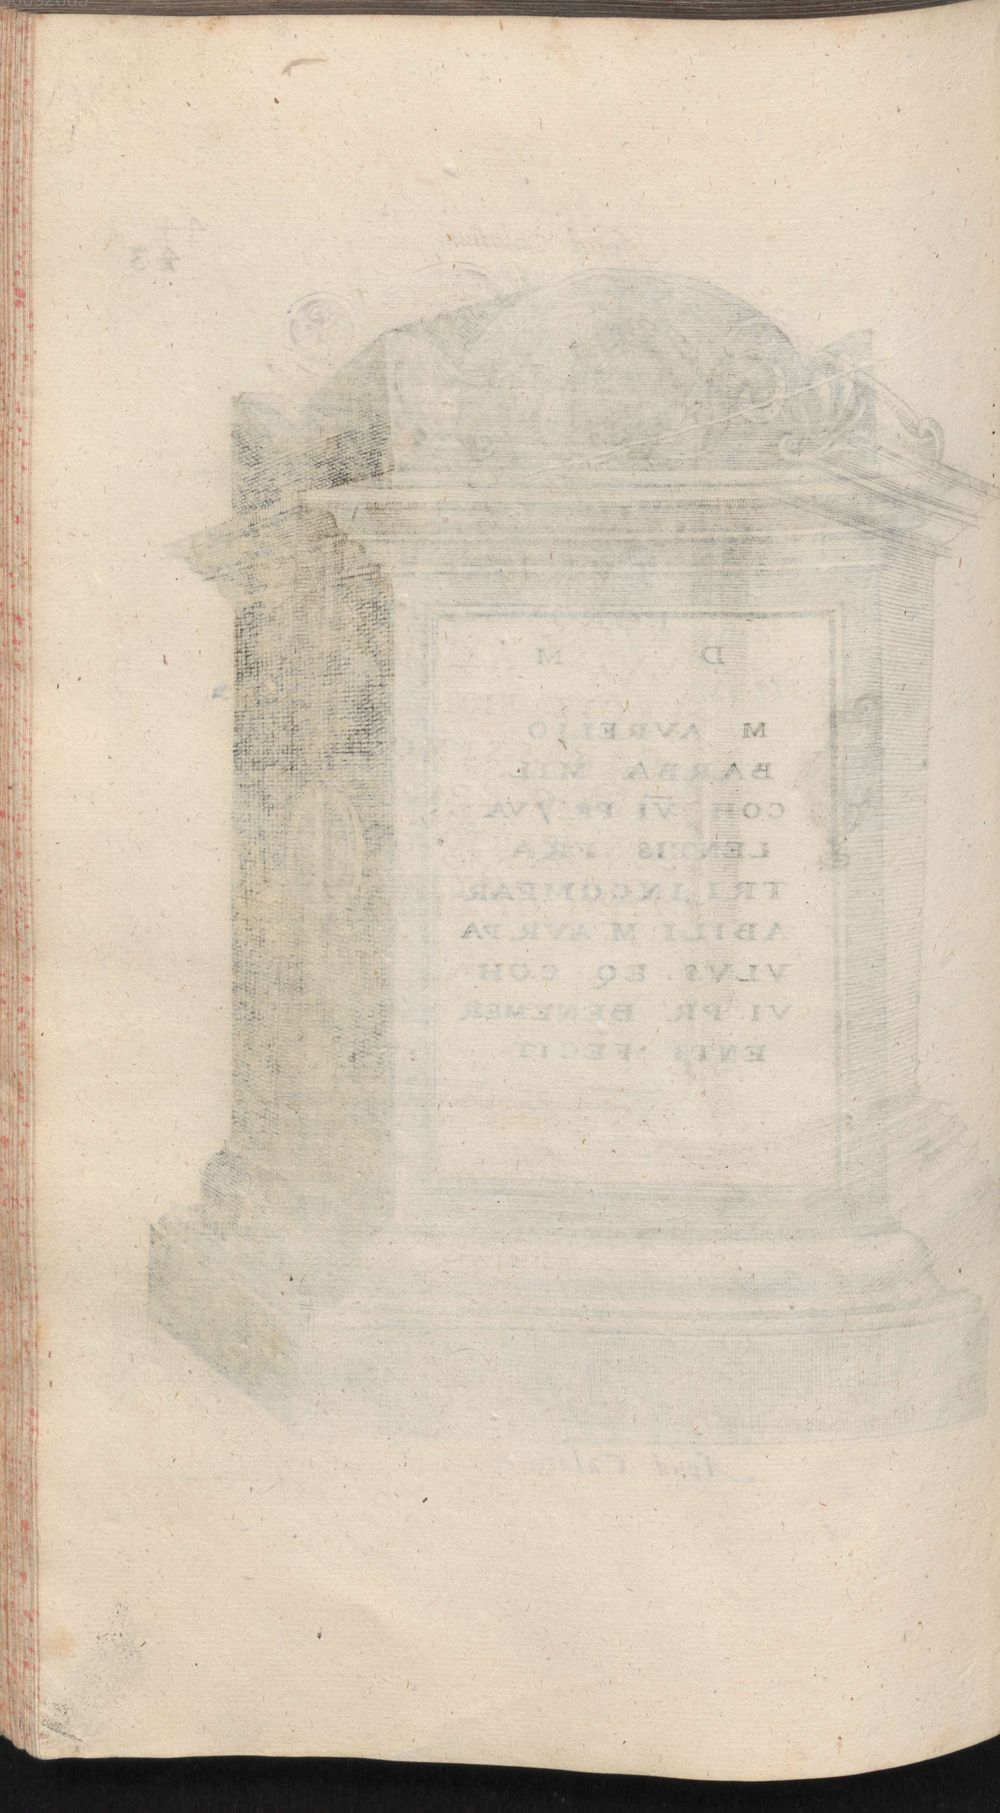 43
D M
M AVRELIO
BARBA MIL
COH VI PR 7 VA
LENTIS FRA
TRI INCOMPAR
ABILI M AVR PA
VLVS EQ COH
VI PR BENEMER
ENTI FECIT
Apud